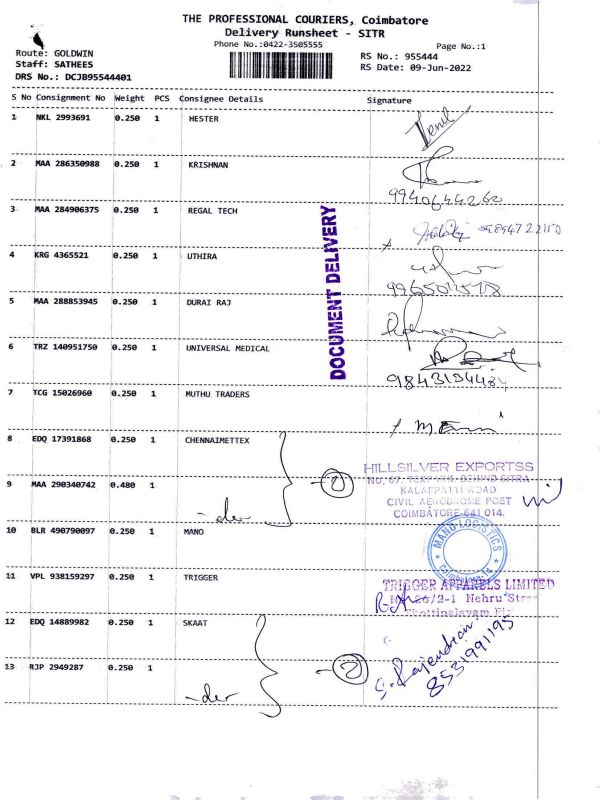 THE PROFESSIONAL COURIERS, Coimbatore
Delivery Runsheet - SITR
Phone No.:0422-3505555
Page No.:1
Route: GOLDWIN
RS No.: 955444
Staff: SATHEES
RS Date: 09-Jun-2022
DRS No.: DCJB95544401
S No Consignment No Weight PCS Consignee Details Signature
1 NKL 2993691 0.250 1 HESTER
2 MAA 286350988 0.250 1 KRISHNAN
9940644260
3 MAA 284906375 0.250 1 REGAL TECH
4 KRG 4365521 0.250 1 UTHIRA
5 MAA 288853945 0.250 1 DURAI RAJ
6 TRZ 140951750 0.250 1 UNIVERSAL MEDICAL
7 TCG 15026960 0.250 1 MUTHU TRADERS
8 EDQ 17391868 0.250 1 CHENNAIMETTEX
9 MAA 290340742 0.480 1
-der
10 BLR 490790097 0.250 1 MANO
11 VPL 938159297 0.250 1 TRIGGER
12 EDQ 14889982 0.250 1 SKAAT
13 RJP 2949287 0.250 1
-der
DOCUMENT DELIVERY
HILLSILVER EXPORTSS
NO, 67, TEXPARK, BEHIND SITRA
KALAPPATTI ROAD
CIVIL AERODROME POST
COIMBATORE-641 014.
MANO LOGISTICS
Coimbatore-14
TRIGGER APPARELS LIMITED
26/2-1 Nehru Stree
S. Rajendran
8531991195